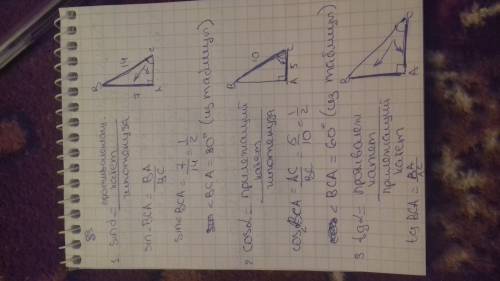 88
1. sinα = противолежащ. катет / гипотенуза
sin<BCA = BA / BC
sin<BCA = 7/14 = 1/2
<BCA = 30° (из таблицы)
B 14 C
7 A
2. cosα = прилежащий катет / гипотенуза
cos BCA = AC / BC = 5/10 = 1/2
<BCA = 60° (из таблицы)
B 10 C
A 5
3. tgα = катет / прилежащий катет
tg BCA = BA / AC
B C
A